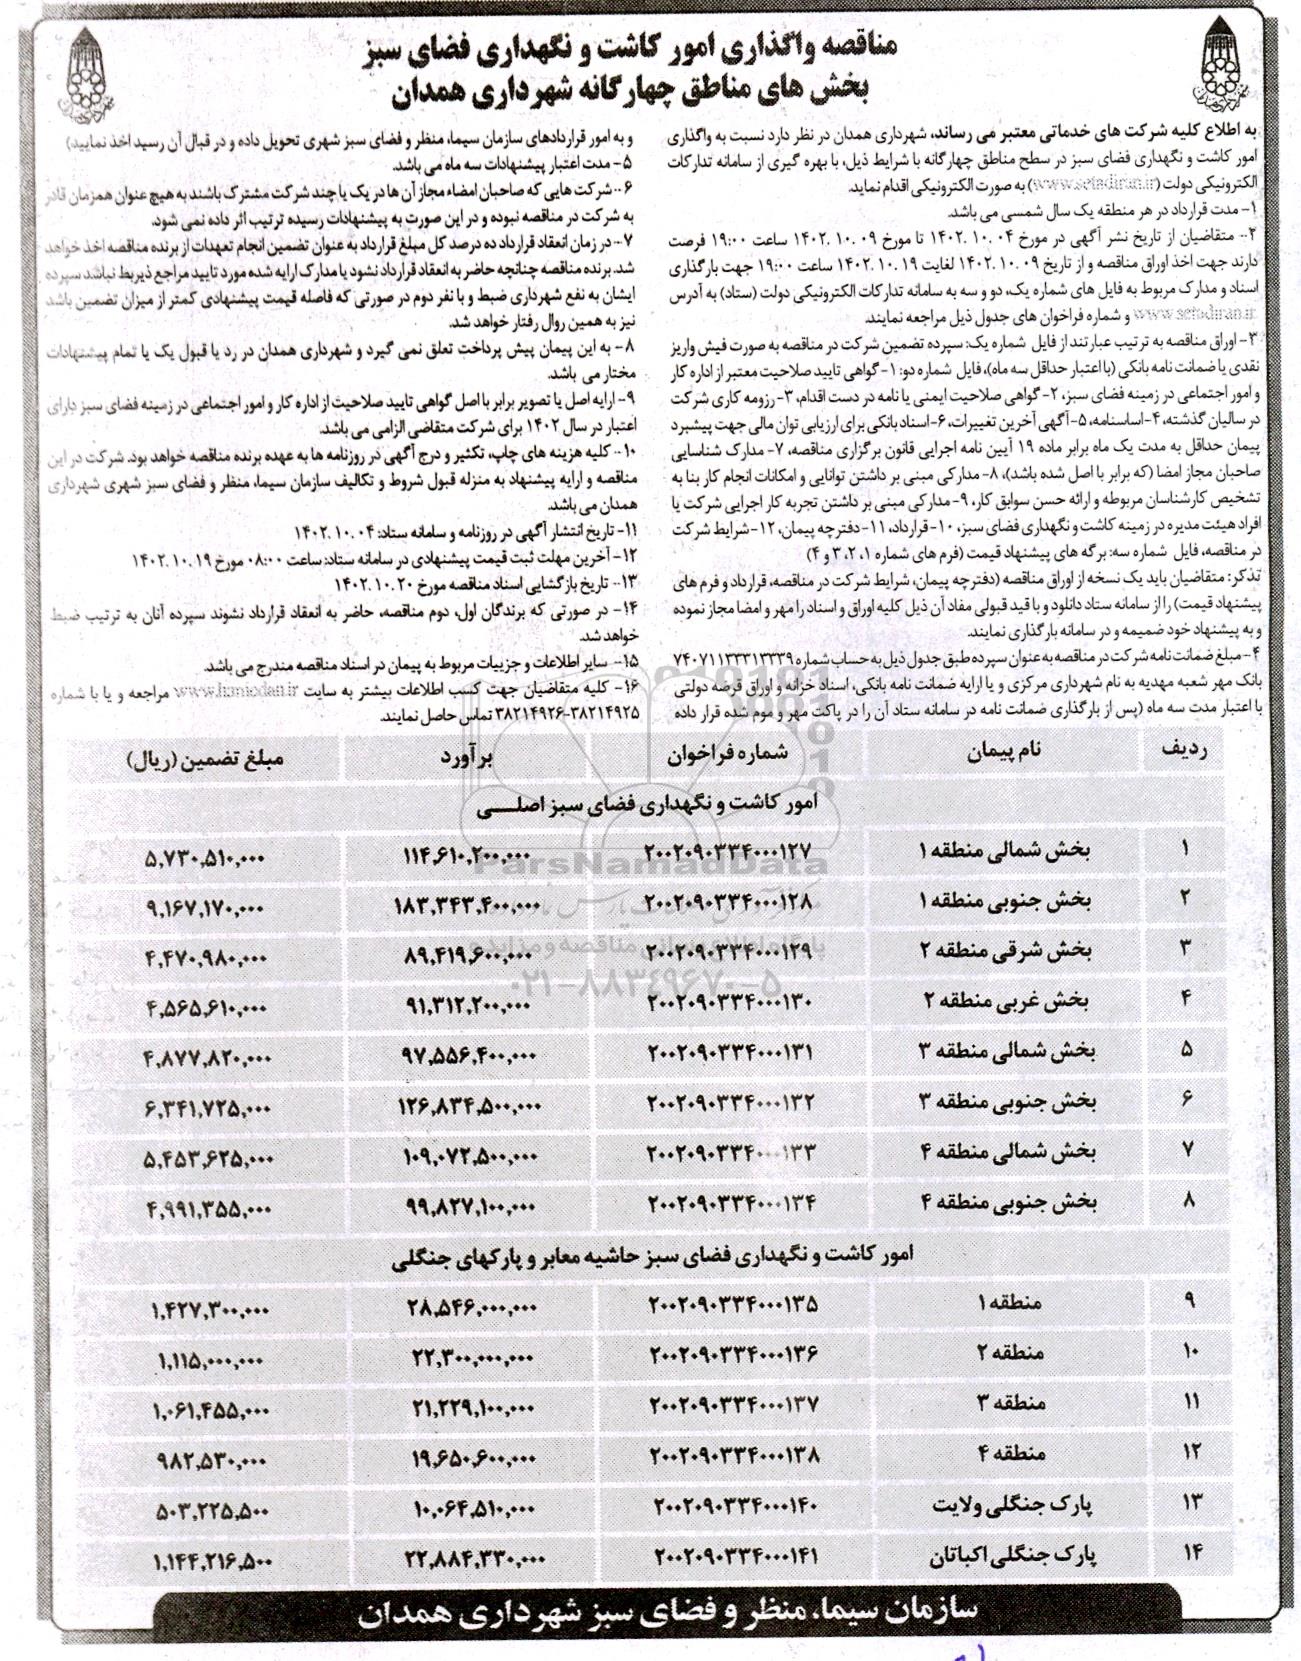 مناقصه واگذاری امور کاشت و نگهداری فضای سبز
بخش های مناطق چهارگانه شهرداری همدان
به اطلاع کلیه شرکت های خدماتی معتبر می رساند، شهرداری همدان در نظر دارد نسبت به واگذاری
امور کاشت و نگهداری فضای سبز در سطح مناطق چهارگانه با شرایط ذیل، با بهره گیری از سامانه تدارکات
الکترونیکی دولت (www.setadiran.ir) به صورت الکترونیکی اقدام نماید.
۱- مدت قرارداد در هر منطقه یک سال شمسی می باشد.
۲- متقاضیان از تاریخ نشر آگهی در مورخ ۰۴ .۱۰ .۱۴۰۲ تا مورخ ۰۹ .۱۰ .۱۴۰۲ ساعت ۱۹:۰۰ فرصت
دارند جهت اخذ اوراق مناقصه و از تاریخ ۰۹ .۱۰ .۱۴۰۲ لغایت ۱۹ .۱۰ .۱۴۰۲ ساعت ۱۹:۰۰ جهت بارگذاری
اسناد و مدارک مربوط به فایل های شماره یک، دو و سه به سامانه تدارکات الکترونیکی دولت (ستاد) به آدرس
www.setadiran.ir و شماره فراخوان های جدول ذیل مراجعه نمایند.
۳- اوراق مناقصه به ترتیب عبارتند از فایل شماره یک: سپرده تضمین شرکت در مناقصه به صورت فیش واریز
نقدی یا ضمانت نامه بانکی (با اعتبار حداقل سه ماه)، فایل شماره دو: ۱- گواهی تایید صلاحیت معتبر از اداره کار
و امور اجتماعی در زمینه فضای سبز، ۲- گواهی صلاحیت ایمنی یا نامه در دست اقدام، ۳- رزومه کاری شرکت
در سالیان گذشته، ۴- اساسنامه، ۵- آگهی آخرین تغییرات، ۶- اسناد بانکی برای ارزیابی توان مالی جهت پیشبرد
پیمان حداقل به مدت یک ماه برابر ماده ۱۹ آیین نامه اجرایی قانون برگزاری مناقصه، ۷- مدارک شناسایی
صاحبان مجاز امضا (که برابر با اصل شده باشد)، ۸- مدارکی مبنی بر داشتن توانایی و امکانات انجام کار بنا به
تشخیص کارشناسان مربوطه و ارائه حسن سوابق کار، ۹- مدارکی مبنی بر داشتن تجربه کار اجرایی شرکت یا
افراد هیئت مدیره در زمینه کاشت و نگهداری فضای سبز، ۱۰- قرارداد، ۱۱- دفترچه پیمان، ۱۲- شرایط شرکت
در مناقصه، فایل شماره سه: برگه های پیشنهاد قیمت (فرم های شماره ۱، ۲، ۳ و ۴)
تذکر: متقاضیان باید یک نسخه از اوراق مناقصه (دفترچه پیمان، شرایط شرکت در مناقصه، قرارداد و فرم های
پیشنهاد قیمت) را از سامانه ستاد دانلود و با قید قبولی مفاد آن ذیل کلیه اوراق و اسناد را مهر و امضا مجاز نموده
و به پیشنهاد خود ضمیمه و در سامانه بارگذاری نمایند.
۴- مبلغ ضمانت نامه شرکت در مناقصه به عنوان سپرده طبق جدول ذیل به حساب شماره ۷۴۰۷۱۱۳۳۳۱۳۳۳۹
بانک مهر شعبه مهدیه به نام شهرداری مرکزی و یا ارایه ضمانت نامه بانکی، اسناد خزانه و اوراق قرضه دولتی
با اعتبار مدت سه ماه (پس از بارگذاری ضمانت نامه در سامانه ستاد آن را در پاکت مهر و موم شده قرار داده
و به امور قراردادهای سازمان سیما، منظر و فضای سبز شهری تحویل داده و در قبال آن رسید اخذ نمایید)
۵- مدت اعتبار پیشنهادات سه ماه می باشد.
۶- شرکت هایی که صاحبان امضاء مجاز آن ها در یک یا چند شرکت مشترک باشند به هیچ عنوان همزمان قادر
به شرکت در مناقصه نبوده و در این صورت به پیشنهادات رسیده ترتیب اثر داده نمی شود.
۷- در زمان انعقاد قرارداد ده درصد کل مبلغ قرارداد به عنوان تضمین انجام تعهدات از برنده مناقصه اخذ خواهد
شد. برنده مناقصه چنانچه حاضر به انعقاد قرارداد نشود یا مدارک ارایه شده مورد تایید مراجع ذیربط نباشد سپرده
ایشان به نفع شهرداری ضبط و با نفر دوم در صورتی که فاصله قیمت پیشنهادی کمتر از میزان تضمین باشد
نیز به همین روال رفتار خواهد شد.
۸- به این پیمان پیش پرداخت تعلق نمی گیرد و شهرداری همدان در رد یا قبول یک یا تمام پیشنهادات
مختار می باشد.
۹- ارایه اصل یا تصویر برابر با اصل گواهی تایید صلاحیت از اداره کار و امور اجتماعی در زمینه فضای سبز دارای
اعتبار در سال ۱۴۰۲ برای شرکت متقاضی الزامی می باشد.
۱۰- کلیه هزینه های چاپ، تکثیر و درج آگهی در روزنامه ها به عهده برنده مناقصه خواهد بود. شرکت در این
مناقصه و ارایه پیشنهاد به منزله قبول شروط و تکالیف سازمان سیما، منظر و فضای سبز شهری شهرداری
همدان می باشد.
۱۱- تاریخ انتشار آگهی در روزنامه و سامانه ستاد: ۰۴ .۱۰ .۱۴۰۲
۱۲- آخرین مهلت ثبت قیمت پیشنهادی در سامانه ستاد: ساعت ۰۸:۰۰ مورخ ۱۹ .۱۰ .۱۴۰۲
۱۳- تاریخ بازگشایی اسناد مناقصه مورخ ۲۰ .۱۰ .۱۴۰۲
۱۴- در صورتی که برندگان اول، دوم مناقصه، حاضر به انعقاد قرارداد نشوند سپرده آنان به ترتیب ضبط
خواهد شد.
۱۵- سایر اطلاعات و جزییات مربوط به پیمان در اسناد مناقصه مندرج می باشد.
۱۶- کلیه متقاضیان جهت کسب اطلاعات بیشتر به سایت www.hamedan.ir مراجعه و یا با شماره
۳۸۲۱۴۹۲۵-۳۸۲۱۴۹۲۶ تماس حاصل نمایند.
ردیف نام پیمان شماره فراخوان برآورد مبلغ تضمین (ریال)
امور کاشت و نگهداری فضای سبز اصلی
۱ بخش شمالی منطقه ۱ ۲۰۰۲۰۹۰۳۳۴۰۰۰۱۲۷ ۱۱۴,۶۱۰,۲۰۰,۰۰۰ ۵,۷۳۰,۵۱۰,۰۰۰
۲ بخش جنوبی منطقه ۱ ۲۰۰۲۰۹۰۳۳۴۰۰۰۱۲۸ ۱۸۳,۳۴۳,۴۰۰,۰۰۰ ۹,۱۶۷,۱۷۰,۰۰۰
۳ بخش شرقی منطقه ۲ ۲۰۰۲۰۹۰۳۳۴۰۰۰۱۲۹ ۸۹,۴۱۹,۶۰۰,۰۰۰ ۴,۴۷۰,۹۸۰,۰۰۰
۴ بخش غربی منطقه ۲ ۲۰۰۲۰۹۰۳۳۴۰۰۰۱۳۰ ۹۱,۳۱۲,۲۰۰,۰۰۰ ۴,۵۶۵,۶۱۰,۰۰۰
۵ بخش شمالی منطقه ۳ ۲۰۰۲۰۹۰۳۳۴۰۰۰۱۳۱ ۹۷,۵۵۶,۴۰۰,۰۰۰ ۴,۸۷۷,۸۲۰,۰۰۰
۶ بخش جنوبی منطقه ۳ ۲۰۰۲۰۹۰۳۳۴۰۰۰۱۳۲ ۱۲۶,۸۳۴,۵۰۰,۰۰۰ ۶,۳۴۱,۷۲۵,۰۰۰
۷ بخش شمالی منطقه ۴ ۲۰۰۲۰۹۰۳۳۴۰۰۰۱۳۳ ۱۰۹,۰۷۲,۵۰۰,۰۰۰ ۵,۴۵۳,۶۲۵,۰۰۰
۸ بخش جنوبی منطقه ۴ ۲۰۰۲۰۹۰۳۳۴۰۰۰۱۳۴ ۹۹,۸۲۷,۱۰۰,۰۰۰ ۴,۹۹۱,۳۵۵,۰۰۰
امور کاشت و نگهداری فضای سبز حاشیه معابر و پارکهای جنگلی
۹ منطقه ۱ ۲۰۰۲۰۹۰۳۳۴۰۰۰۱۳۵ ۲۸,۵۴۶,۰۰۰,۰۰۰ ۱,۴۲۷,۳۰۰,۰۰۰
۱۰ منطقه ۲ ۲۰۰۲۰۹۰۳۳۴۰۰۰۱۳۶ ۲۲,۳۰۰,۰۰۰,۰۰۰ ۱,۱۱۵,۰۰۰,۰۰۰
۱۱ منطقه ۳ ۲۰۰۲۰۹۰۳۳۴۰۰۰۱۳۷ ۲۱,۲۲۹,۱۰۰,۰۰۰ ۱,۰۶۱,۴۵۵,۰۰۰
۱۲ منطقه ۴ ۲۰۰۲۰۹۰۳۳۴۰۰۰۱۳۸ ۱۹,۶۵۰,۶۰۰,۰۰۰ ۹۸۲,۵۳۰,۰۰۰
۱۳ پارک جنگلی ولایت ۲۰۰۲۰۹۰۳۳۴۰۰۰۱۴۰ ۱۰,۰۶۴,۵۱۰,۰۰۰ ۵۰۳,۲۲۵,۵۰۰
۱۴ پارک جنگلی اکباتان ۲۰۰۲۰۹۰۳۳۴۰۰۰۱۴۱ ۲۲,۸۸۴,۳۳۰,۰۰۰ ۱,۱۴۴,۲۱۶,۵۰۰
سازمان سیما، منظر و فضای سبز شهرداری همدان
ParsNamadData
پایگاه اطلاع رسانی مناقصه و مزایده
۰۲۱-۸۸۳۴۹۶۷۰-۵